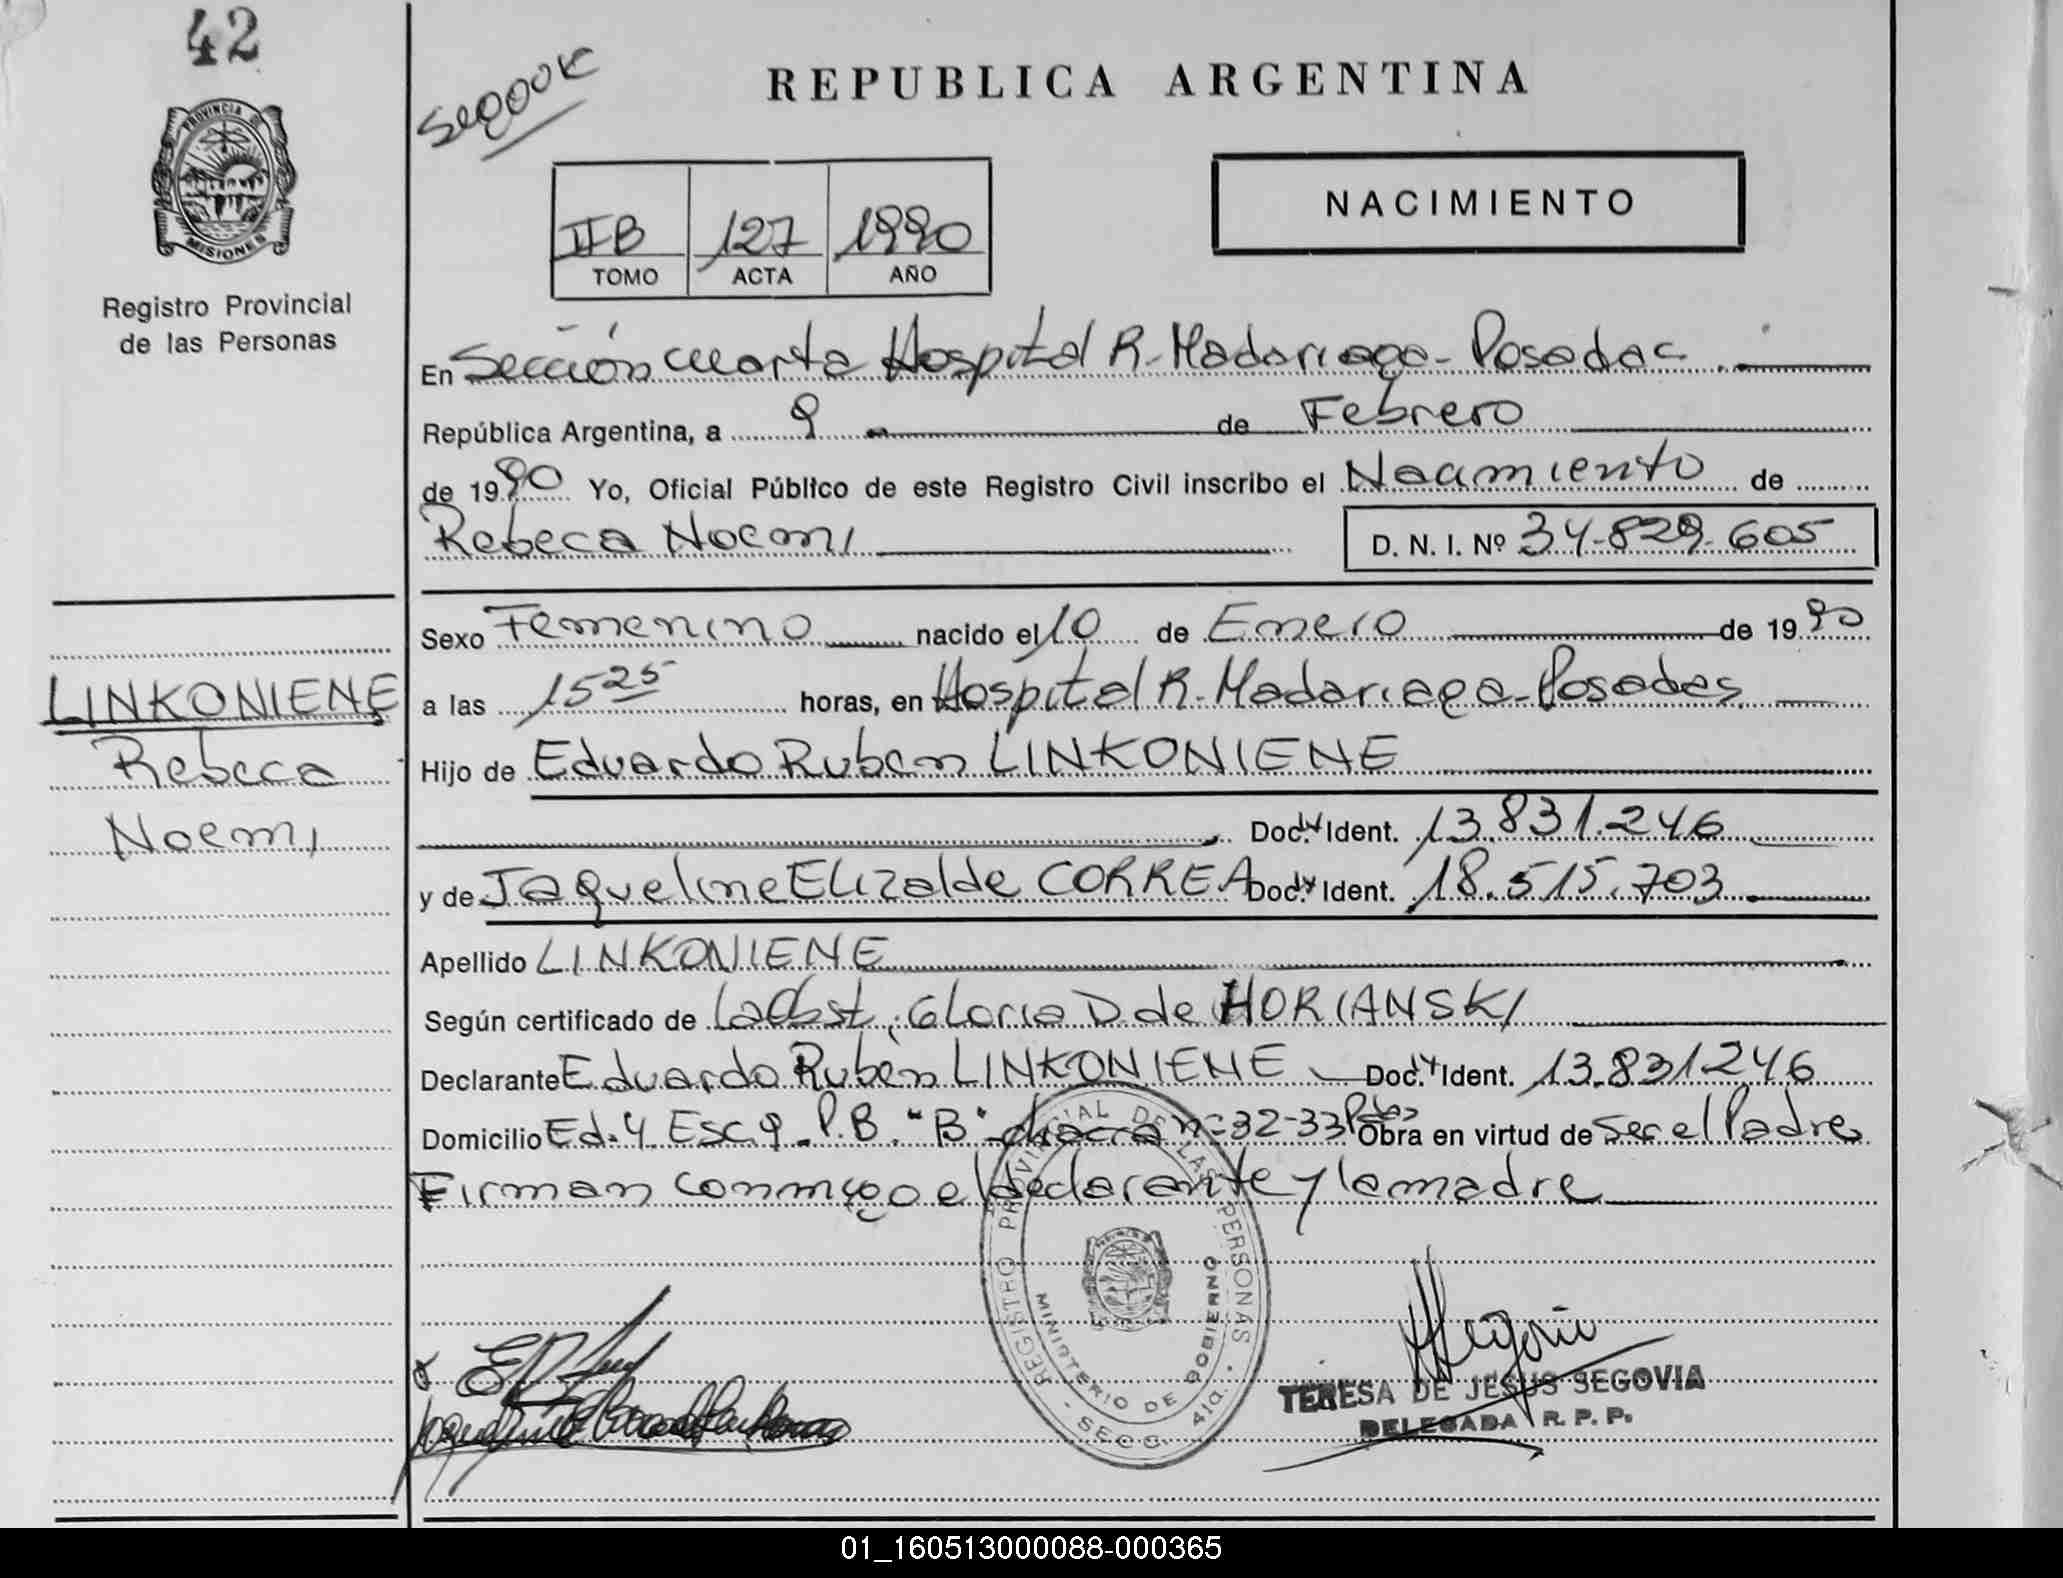 42
PROVINCIA DE
MISIONES
Registro Provincial
de las Personas
REPUBLICA ARGENTINA
NACIMIENTO
IIB 127 1990
TOMO ACTA AÑO
En Sección cuarta Hospital R. Madariaga - Posadas
República Argentina, a 9 de Febrero
de 1990 Yo, Oficial Público de este Registro Civil inscribo el Nacimiento de
Rebeca Noemi D. N. I. Nº 34.829.605
Sexo Femenino nacido el 10 de Enero de 1990
LINKONIENE
Rebeca
Noemi
a las 15 25 horas, en Hospital R. Madariaga - Posadas
Hijo de Eduardo Ruben LINKONIENE
Doc. Ident. 13.831.246
y de Jaqueline Elizalde CORREA Doc. Ident. 18.515.703
Apellido LINKONIENE
Según certificado de la Obst. Gloria D. de HORIANSKI
Declarante Eduardo Rubén LINKONIENE Doc. Ident. 13.831.246
Domicilio Ed. 4 Esc. 9 P.B. "B" chacra nº 32-33 Pdas Obra en virtud de ser el Padre
Firman conmigo el declarante y la madre
REGISTRO PROVINCIAL DE LAS PERSONAS
MINISTERIO DE GOBIERNO
SECC. 4ta.
Segovia
TERESA DE JESUS SEGOVIA
DELEGADA R. P. P.
01_160513000088-000365